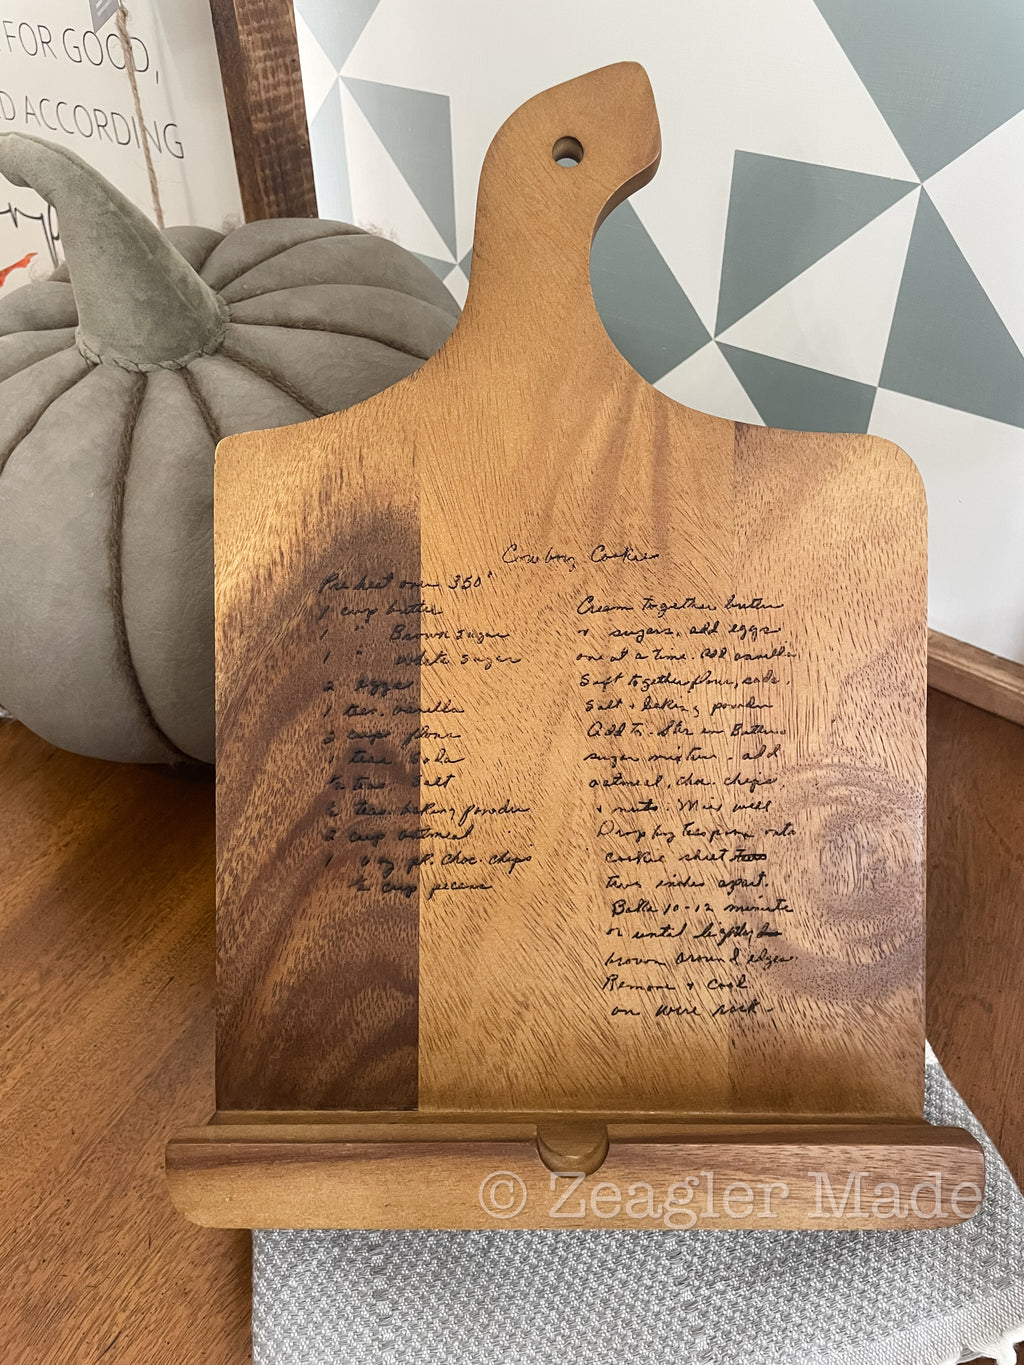 FOR GOOD,
D ACCORDING
Cowboy Cookies
Pre heat oven 350°
1 cup butter
1 " Brown sugar
1 " White sugar
2 eggs
1 teas. vanilla
2 cups flour
1 teas soda
½ teas. salt
½ teas. baking powder
2 cup oatmeal
1 6 oz pk. choc. chips
½ cup pecans
Cream together butter
& sugars, add eggs
one at a time. Add vanilla
Sift together flour, soda,
salt & baking powder
Add to. Stir in Butter
sugar mixture. add
oatmeal, choc. chips,
& nuts. Mix well
Drop by teaspoon onto
cookie sheet
two inches apart.
Bake 10-12 minute
or until lightly
brown around edges
Remove & cool
on wire rack.
© Zeagler Made